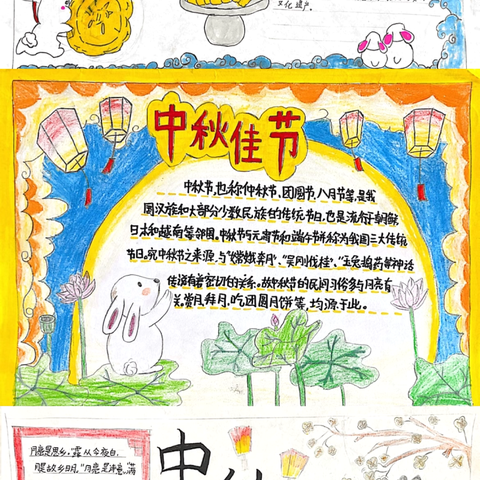 文化遗产。
中秋佳节
中秋节,也称仲秋节、团圆节、八月节等,是我
国汉族和大部分少数民族的传统节日,也是流行于朝鲜、
日本和越南等邻国。中秋节与元宵节和端午节并称为我国三大传统
节日。究中秋节之来源,与“嫦娥奔月”、“吴刚伐桂”、“玉兔捣药”等神话
传说有着密切的关系。故中秋节的民间习俗多与月亮有
关。赏月、拜月、吃团圆月饼等,均源于此。
月是思乡,“露从今夜白,
月是故乡明,”月是
中